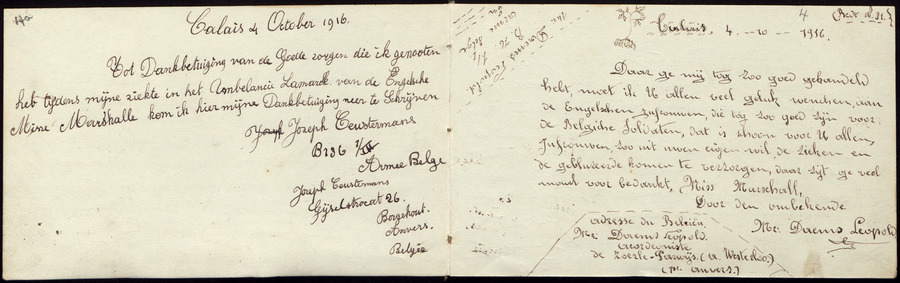 Calais 4 October 1916.
Tot Dankbetuiging van de Goede zorgen die ik genooten
heb tijdens mijne ziekte in het Ambelancie Lamarck van de Engelsche
kom ik hier mijne Dankbetuiging neer te Schrijven
Joseph Ceustermans
B136
Armee Belge
Joseph Ceustermans
Gijselstraat 26.
Borgehout.
Anvers.
Belgie
4
Calais. 4. -- 10 -- 1916.
Daar ge mij tog zoo goed gehandeld
hebt, moet ik U allen veel geluk wenchen, aan
de Engelschen Jufrouwen, die tog zoo goed zijn voor
de Belgiche Soldaten, dat is schoon voor U allen,
Jufrouwen, zoo uit uwen eigen wil, de zieken en
de geblesseerde komen te verzorgen, daar zijt ge veel
maals voor bedankt, Miss Marschall,
Door den onbekende
Mr: Daems Leopold
adresse du Belgien,
Mr: Daems Leopold.
acordeoniste
de Zoerle-Parwijs. (a. Westerloo.)
(pr. anvers.)